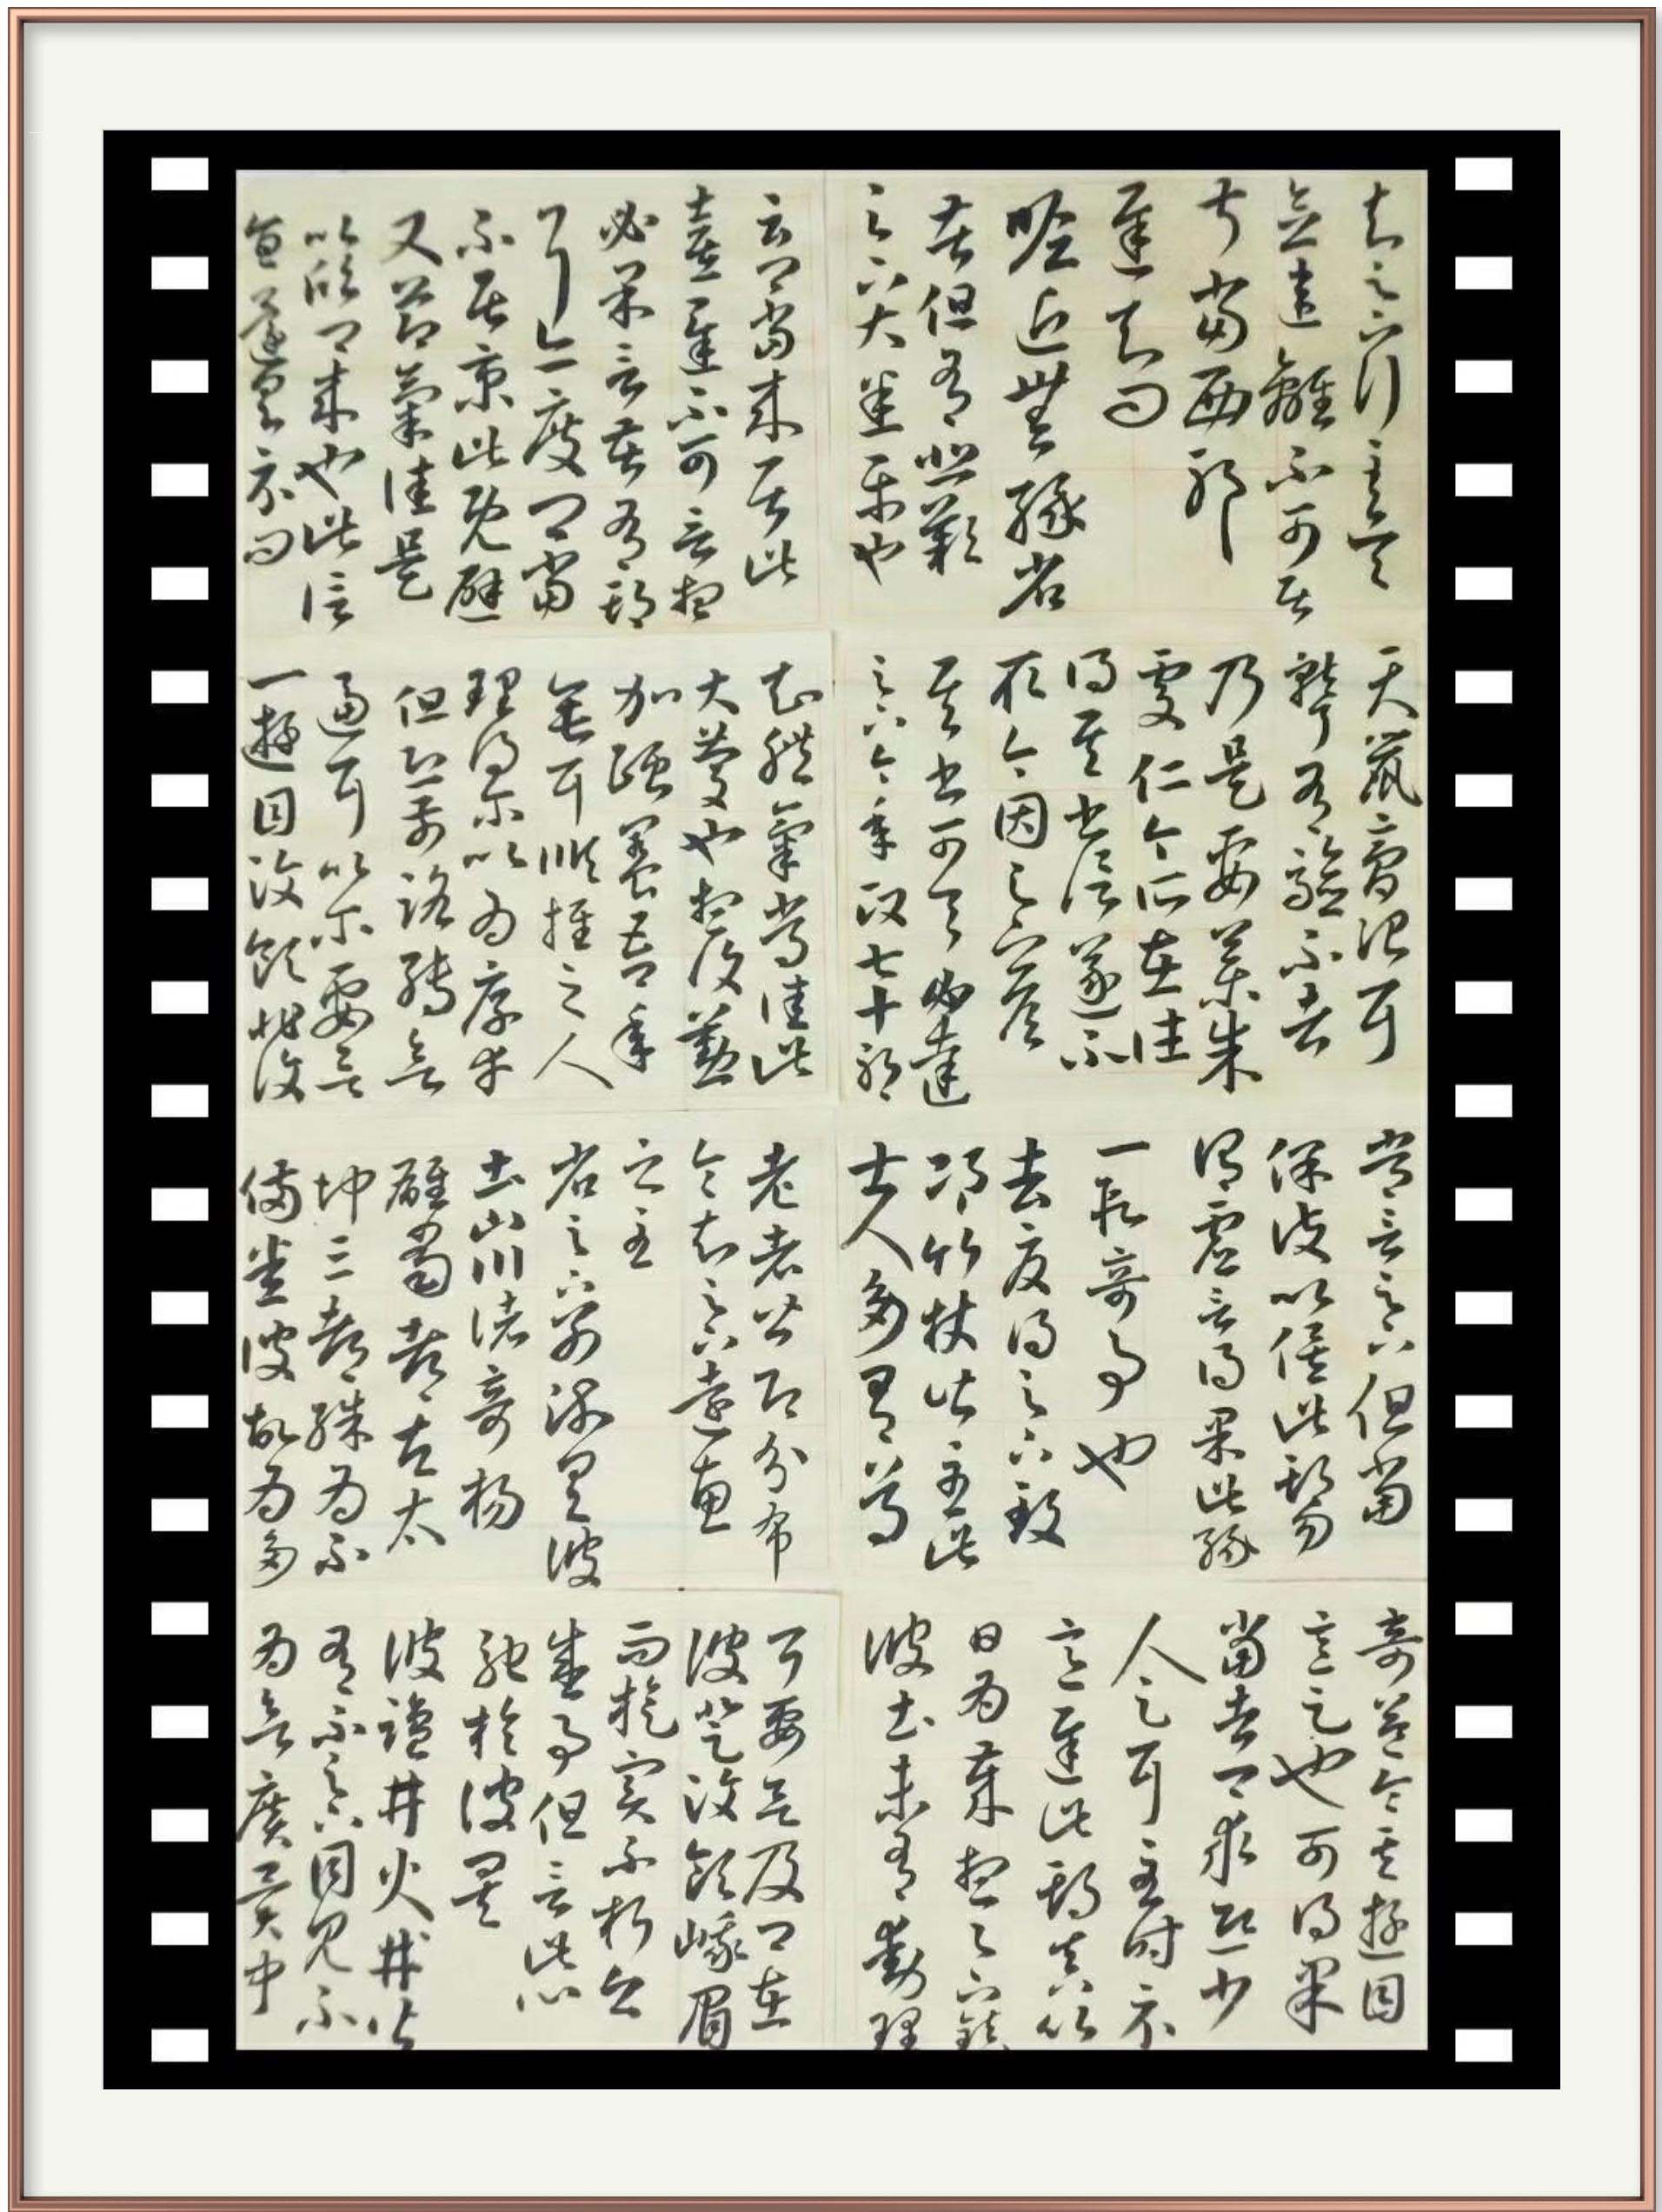 知足下行至吳
念違離不可居
叔當西耶
遲知問
瞻近無緣省
苦但有悲歎
足下大小悉平也
云卿當來居此
喜遲不可言想
必果言苦有期
耳亦度卿當
不居京此既避
又節氣佳是
以欣卿來也此信
旨還具示問
天鼠膏治耳
聾有驗不者
乃是要藥朱
處仁今所在往
得其書信遂不
取今因足下答
其書可令必達
足下今年政七十耶
知體氣常佳此
大慶也想復懃
加頤養吾年
垂耳順推之人
理得爾以為厚幸
但恐前路轉欲
逼耳以爾要欲
一遊目汶領非復
常言足下但當
保護以俟此期勿
謂虛言得果此緣
一段奇事也
去夏得足下致
邛竹杖皆至此
士人多有尊
老者皆即分布
令知足下遠惠
之至
省足下別疏具彼
土山川諸奇楊
雄蜀都左太
沖三都殊為不
備悉彼故為多
奇益令其遊目
意足也可得果
當告卿求迎少
人足耳至時示
意遲此期真以
日為歲想足下鎮
彼土未有動理
耳要欲及卿在
彼登汶領峨眉
而旋實不朽之
盛事但言此心
馳於彼矣
彼鹽井火井皆
有不足下目見不
為欲廣異聞